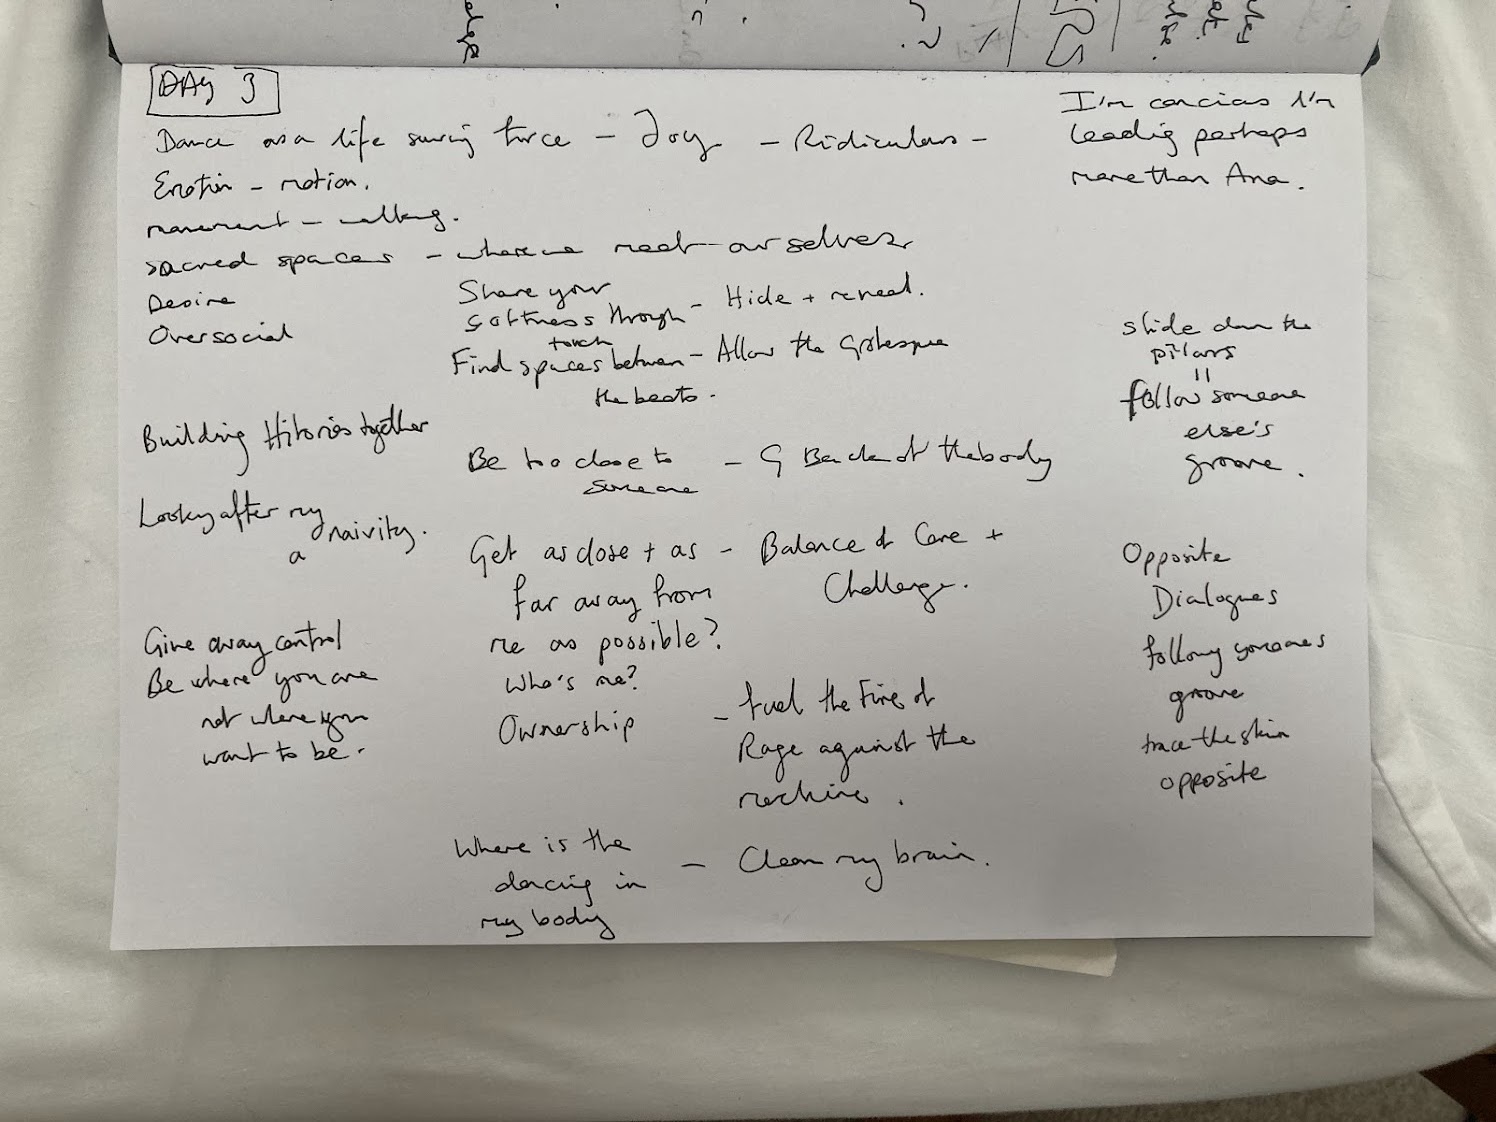 DAY 3
Dance as a life saving force - Joy - Ridiculous -
Emotion - motion.
movement - walking.
sacred spaces - where we meet ourselves
Desire
Oversocial
Building Hitories together
Looking after my
a naivity.
Give away control
Be where you are
not where you
want to be.
Share your
softness through - Hide + reveal.
touch
Find spaces between - Allow the Grotesque
the beats.
Be too close to - Back of the body
someone
Get as close + as - Balance of Care +
far away from Challenge.
me as possible?
Who's me?
Ownership - fuel the Fire of
Rage against the
machine.
Where is the - Clean my brain.
dancing in
my body
I'm concious I'm
leading perhaps
more than Ana.
slide down the
pillars
=
follow someone
else's
groove.
Opposite
Dialogues
following someones
groove
trace the skin
opposite